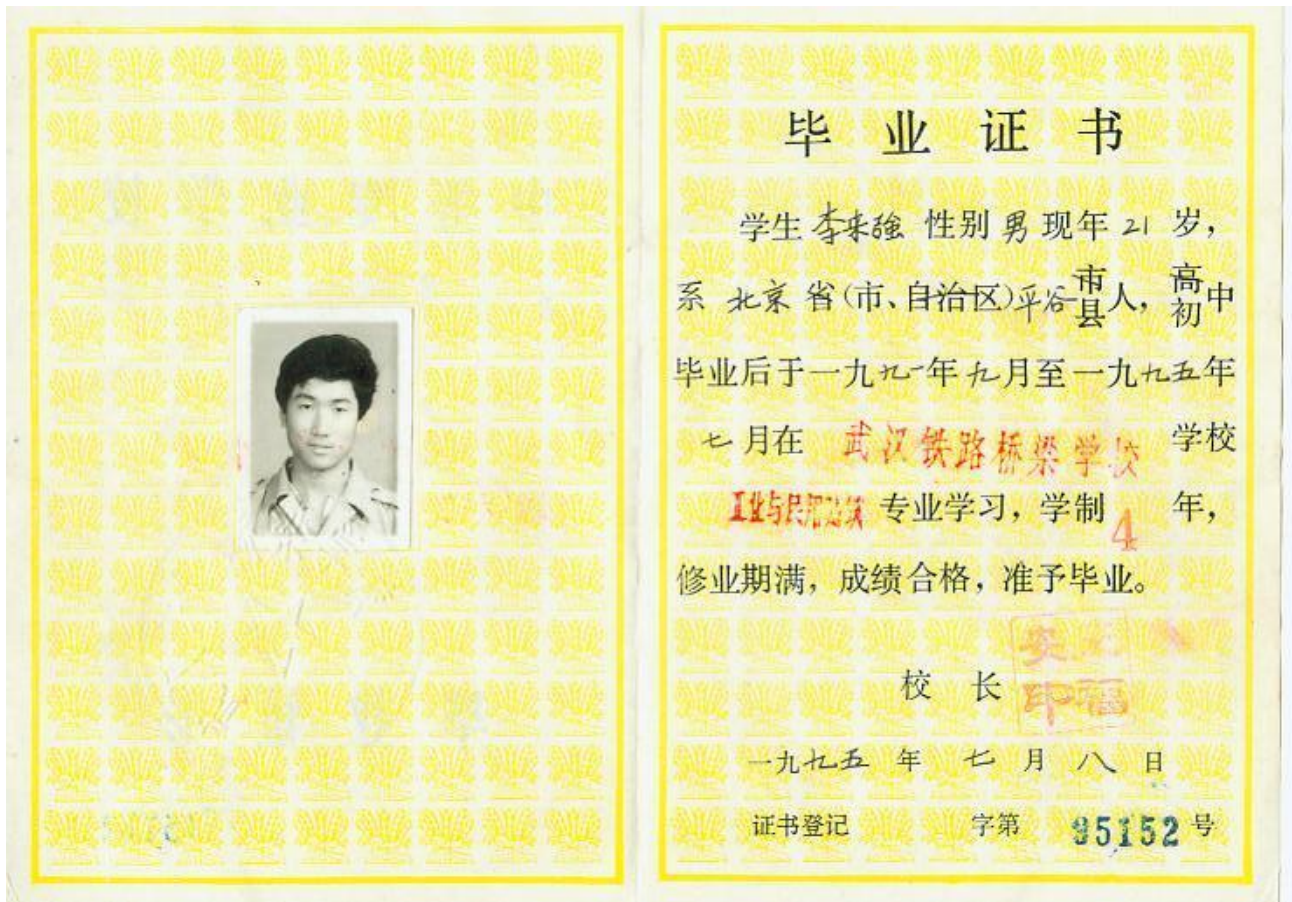 毕业证书
学生 李来强 性别 男 现年 21 岁，
系 北京 省(市、自治区)平谷 市县 人， 高初 中
毕业后于一九九一年九月至一九九五年
七月在 武汉铁路桥梁学校 学校
工业与民用建筑 专业学习，学制 4 年，
修业期满，成绩合格，准予毕业。
校 长
印福
一九九五 年 七 月 八 日
证书登记 字第 95152 号